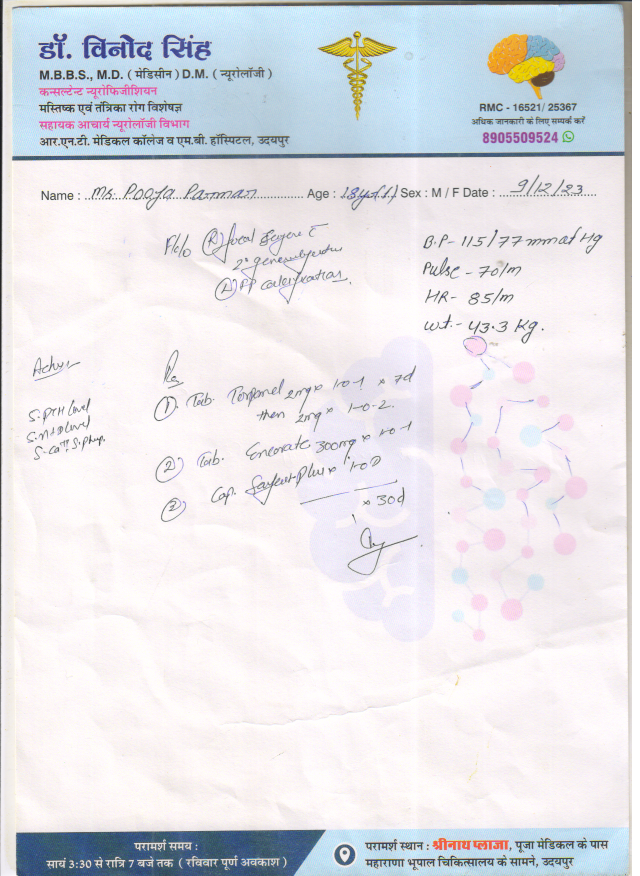 डॉ. विनोद सिंह
M.B.B.S., M.D. ( मेडिसीन ) D.M. ( न्यूरोलॉजी )
कन्सल्टेन्ट न्यूरोफिजीशियन
मस्तिष्क एवं तंत्रिका रोग विशेषज्ञ
सहायक आचार्य न्यूरोलॉजी विभाग
आर.एन.टी. मेडिकल कॉलेज व एम.बी. हॉस्पिटल, उदयपुर
RMC - 16521/ 25367
अधिक जानकारी के लिए सम्पर्क करें
8905509524
Name : Ms. Pooja Parmar Age : 18y(f) Sex : M / F Date : 9/12/23
F/c/o (R) focal seizure c
2° generalization
(L) PP calcification.
B.P- 115/77 mm of Hg
Pulse - 70/m
HR- 85/m
Wt.- 43.3 Kg.
Adv:-
S. PTH level
S. Vit D level
Rx
① Tab. 2mg x 1-0-1 x 7d
then 2mg x 1-0-2.
② Tab. Encorate 300mg x 1-0-1
② Cap. Plus x 1-0-0
x 30d
परामर्श समय :
सायं 3:30 से रात्रि 7 बजे तक ( रविवार पूर्ण अवकाश )
परामर्श स्थान : श्रीनाथ प्लाजा, पूजा मेडिकल के पास
महाराणा भूपाल चिकित्सालय के सामने, उदयपुर